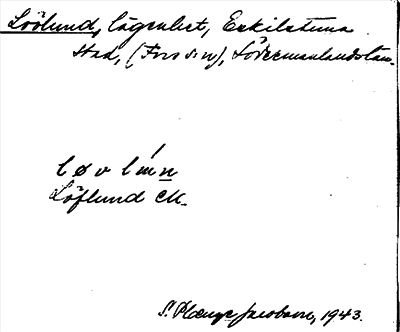 Löölund, lägenhet, Eskilstuna
stad, (Fors sn), Södermanlands län.
løvlúnn
Löflund CK.
S. Plænge Jacobson, 1943.